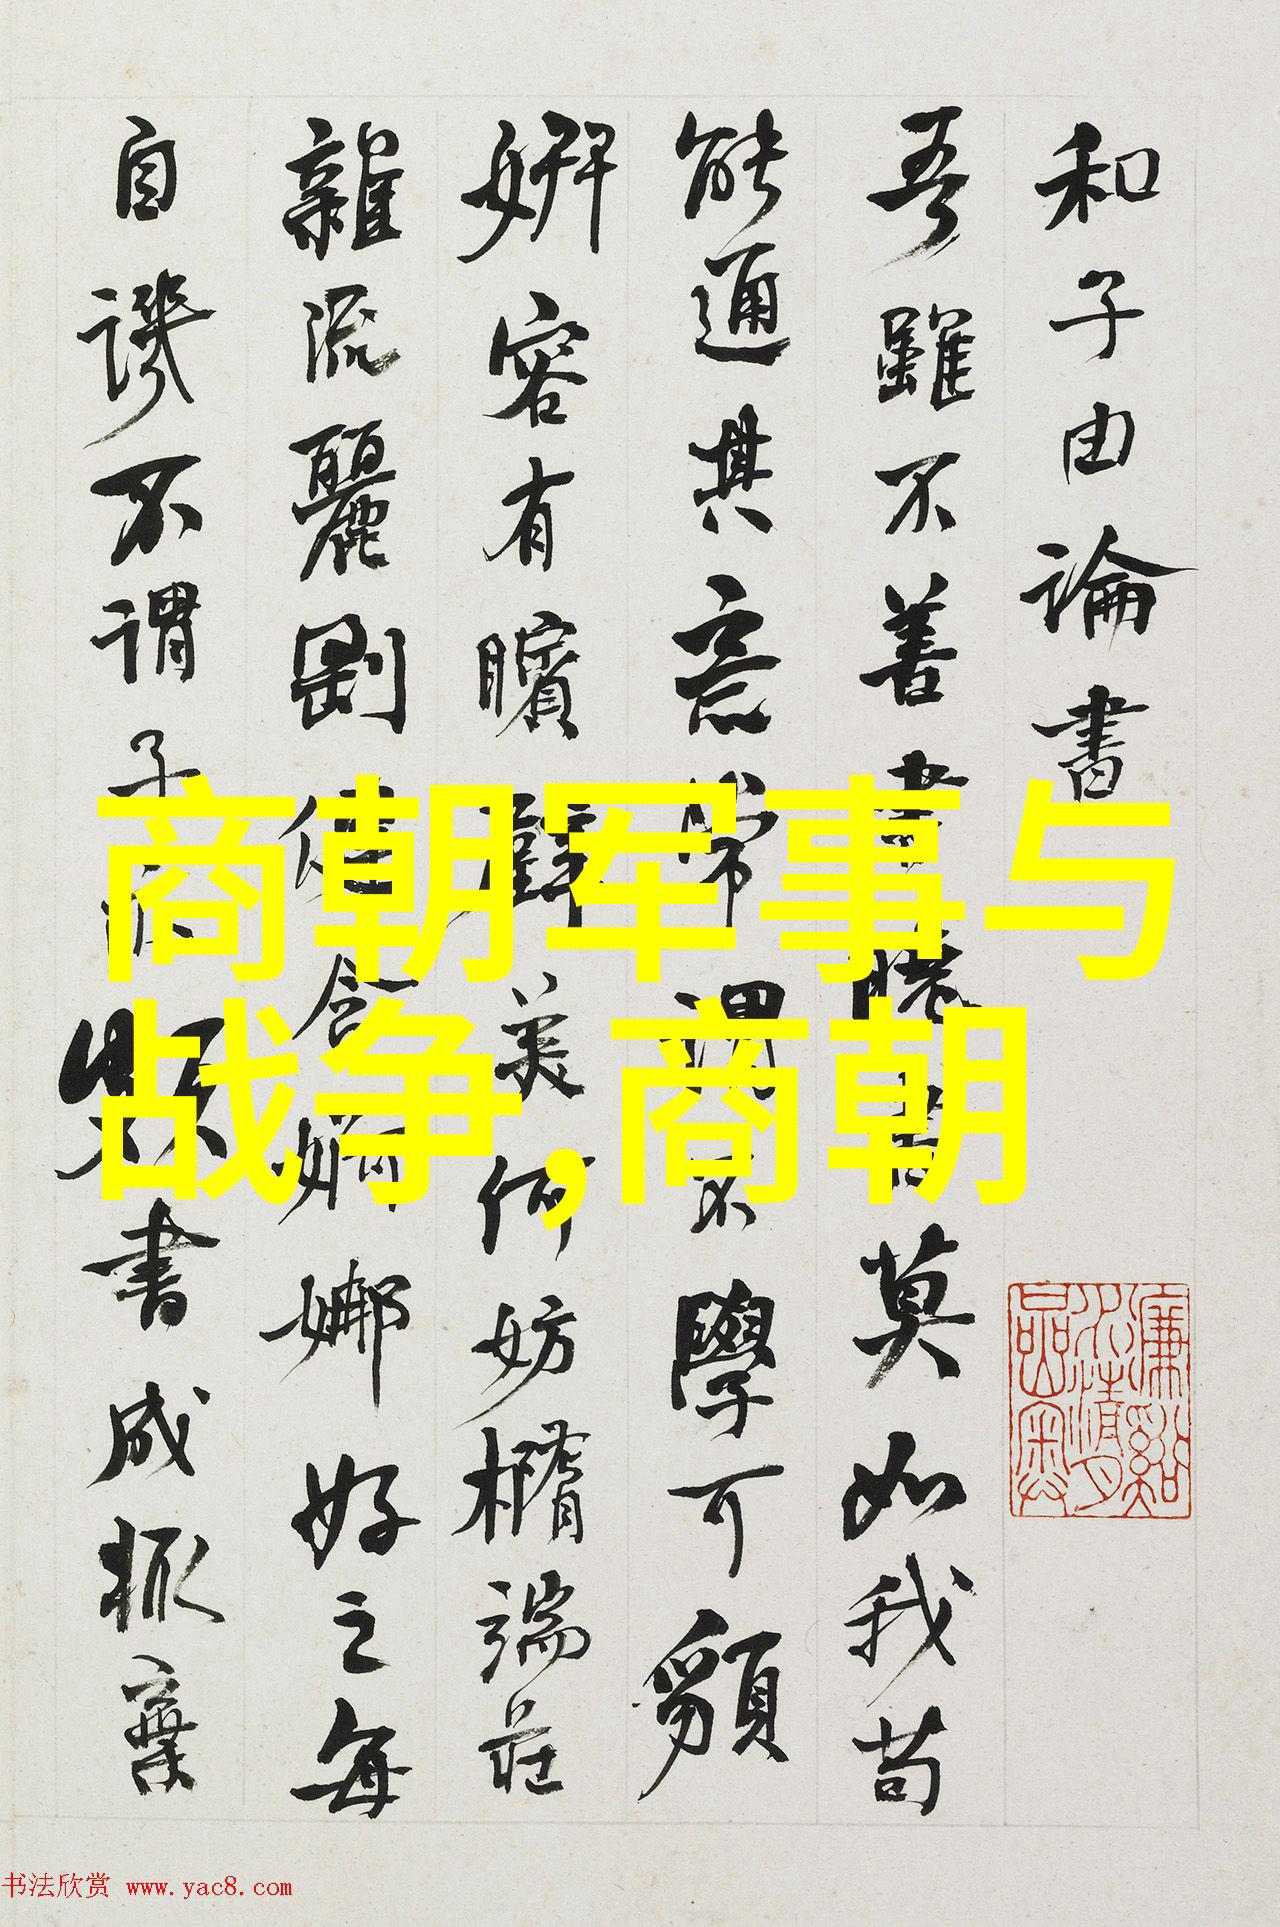 和子由論書
吾雖不善書曉書莫如我苟
能通其意常謂不學可䫉
妍容有矉璧美何妨橢端莊
雜流麗剛健含婀娜好之每
自譏不謂子亦頗書成輒棄
商朝军事与
战争,商朝
书法欣赏 www.yac8.com